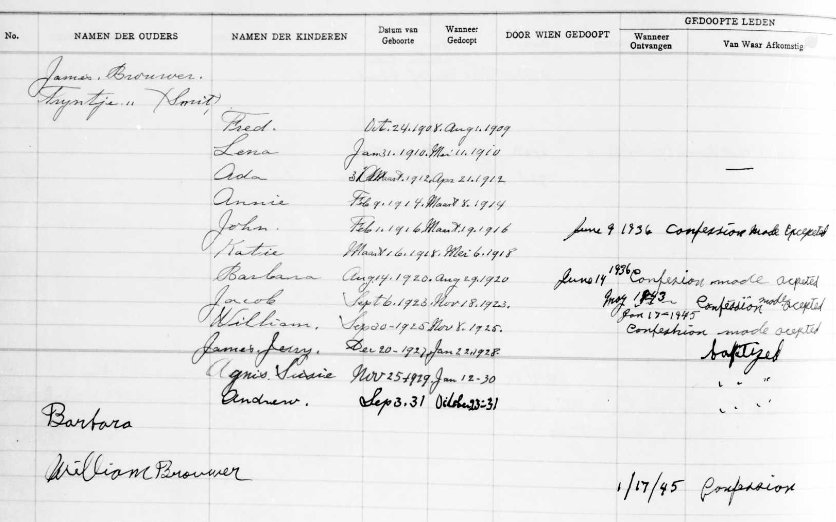 GEDOOPTE LEDEN
No. NAMEN DER OUDERS NAMEN DER KINDEREN Datum van Geboorte Wanneer Gedoopt DOOR WIEN GEDOOPT Wanneer Ontvangen Van Waar Afkomstig
James Brouwer.
Tryntje " (Smit)
Fred. Oct. 24. 1908. Aug 1. 1909
Lena Jan 31. 1910. Mei 11. 1910
Ada Maart. 1912. Apr 21. 1912 —
Annie Feb 9. 1914. Maart 8. 1914
John. Feb 1. 1916. Maart 19. 1916 June 9 1936 Confession Made Excepted
Katie Maart 16. 1918. Mei 6. 1918
Barbara Aug 14. 1920. Aug 29. 1920 June 14 1936 Confesion made acepted
Jacob Sept 6. 1923. Nov 18. 1923. May 1943 Confession made acepted
William. Sep 30-1925. Nov 8. 1925. Jan 17-1945 Confeshion made acepted
James Jerry. Dec 20-1927. Jan 22. 1928. baptized
Agnis Sussie Nov 25-1929 Jan 12-30 " " "
Andrew. Sep 3. 31 October 23-31 " " "
Barbara
William Brouwer 1/17/45 Confession